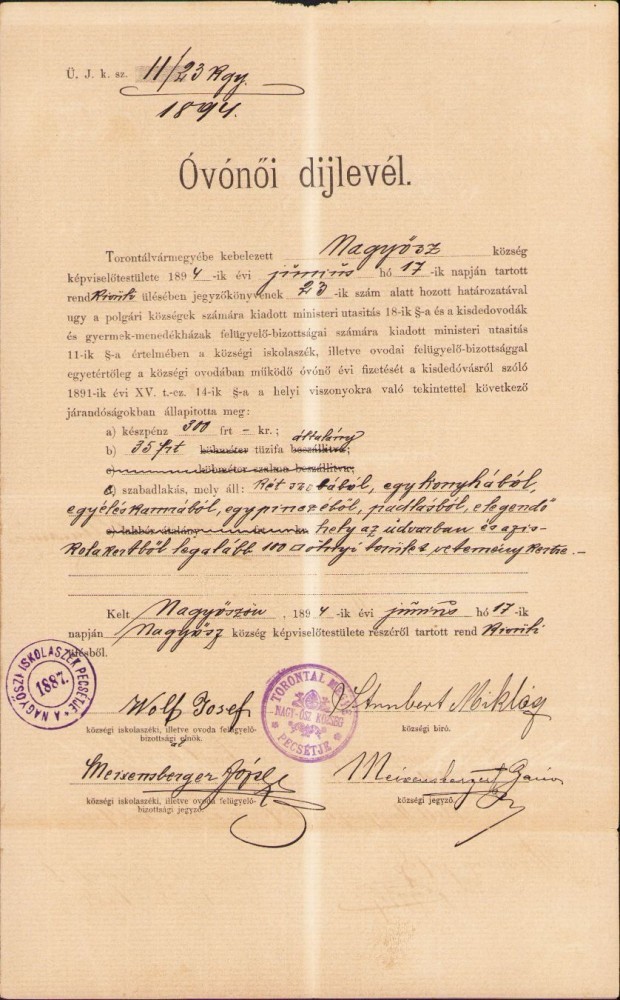 Ü. J. k. sz. 11/23 Kgy.
1894.
Óvónői dijlevél.
Torontálvármegyébe kebelezett Nagyősz község
képviselőtestülete 1894-ik évi június hó 17-ik napján tartott
rendkivüli ülésében jegyzőkönyvének 23-ik szám alatt hozott határozatával
ugy a polgári községek számára kiadott ministeri utasitás 18-ik §-a és a kisdedovodák
és gyermek-menedékházak felügyelő-bizottságai számára kiadott ministeri utasitás
11-ik §-a értelmében a községi iskolaszék, illetve ovodai felügyelő-bizottsággal
egyetértőleg a községi ovodában működő óvónő évi fizetését a kisdedóvásról szóló
1891-ik évi XV. t.-cz. 14-ik §-a a helyi viszonyokra való tekintettel következő
járandóságokban állapitotta meg:
a) készpénz 300 frt – kr.;
b) 35 frt köbméter tüzifa beszállitva; általány
c) köbméter szalma beszállitva;
c) szabadlakás, mely áll: Két szobából, egy konyhából,
egy éléskamrából, egy pinczéből, padlásból, elegendő
hely az udvarban és az is-
kolakertből legalább 100 □ ölnyi terület vetemény kertre.–
Kelt Nagyőszön, 1894-ik évi június hó 17-ik
napján Nagyősz község képviselőtestülete részéről tartott rendkivüli
ülésből.
A NAGYŐSZI ISKOLASZÉK PECSÉTJE * 1887.
TORONTÁL M. NAGY-ŐSZ KÖZSÉG PECSÉTJE
Wolf Josef
községi iskolaszéki, illetve ovoda felügyelő-
bizottsági elnök.
Stumbert Miklós
községi biró.
Meixensberger József
községi iskolaszéki, illetve ovoda felügyelő-
bizottsági jegyző.
Meixensberger
községi jegyző.